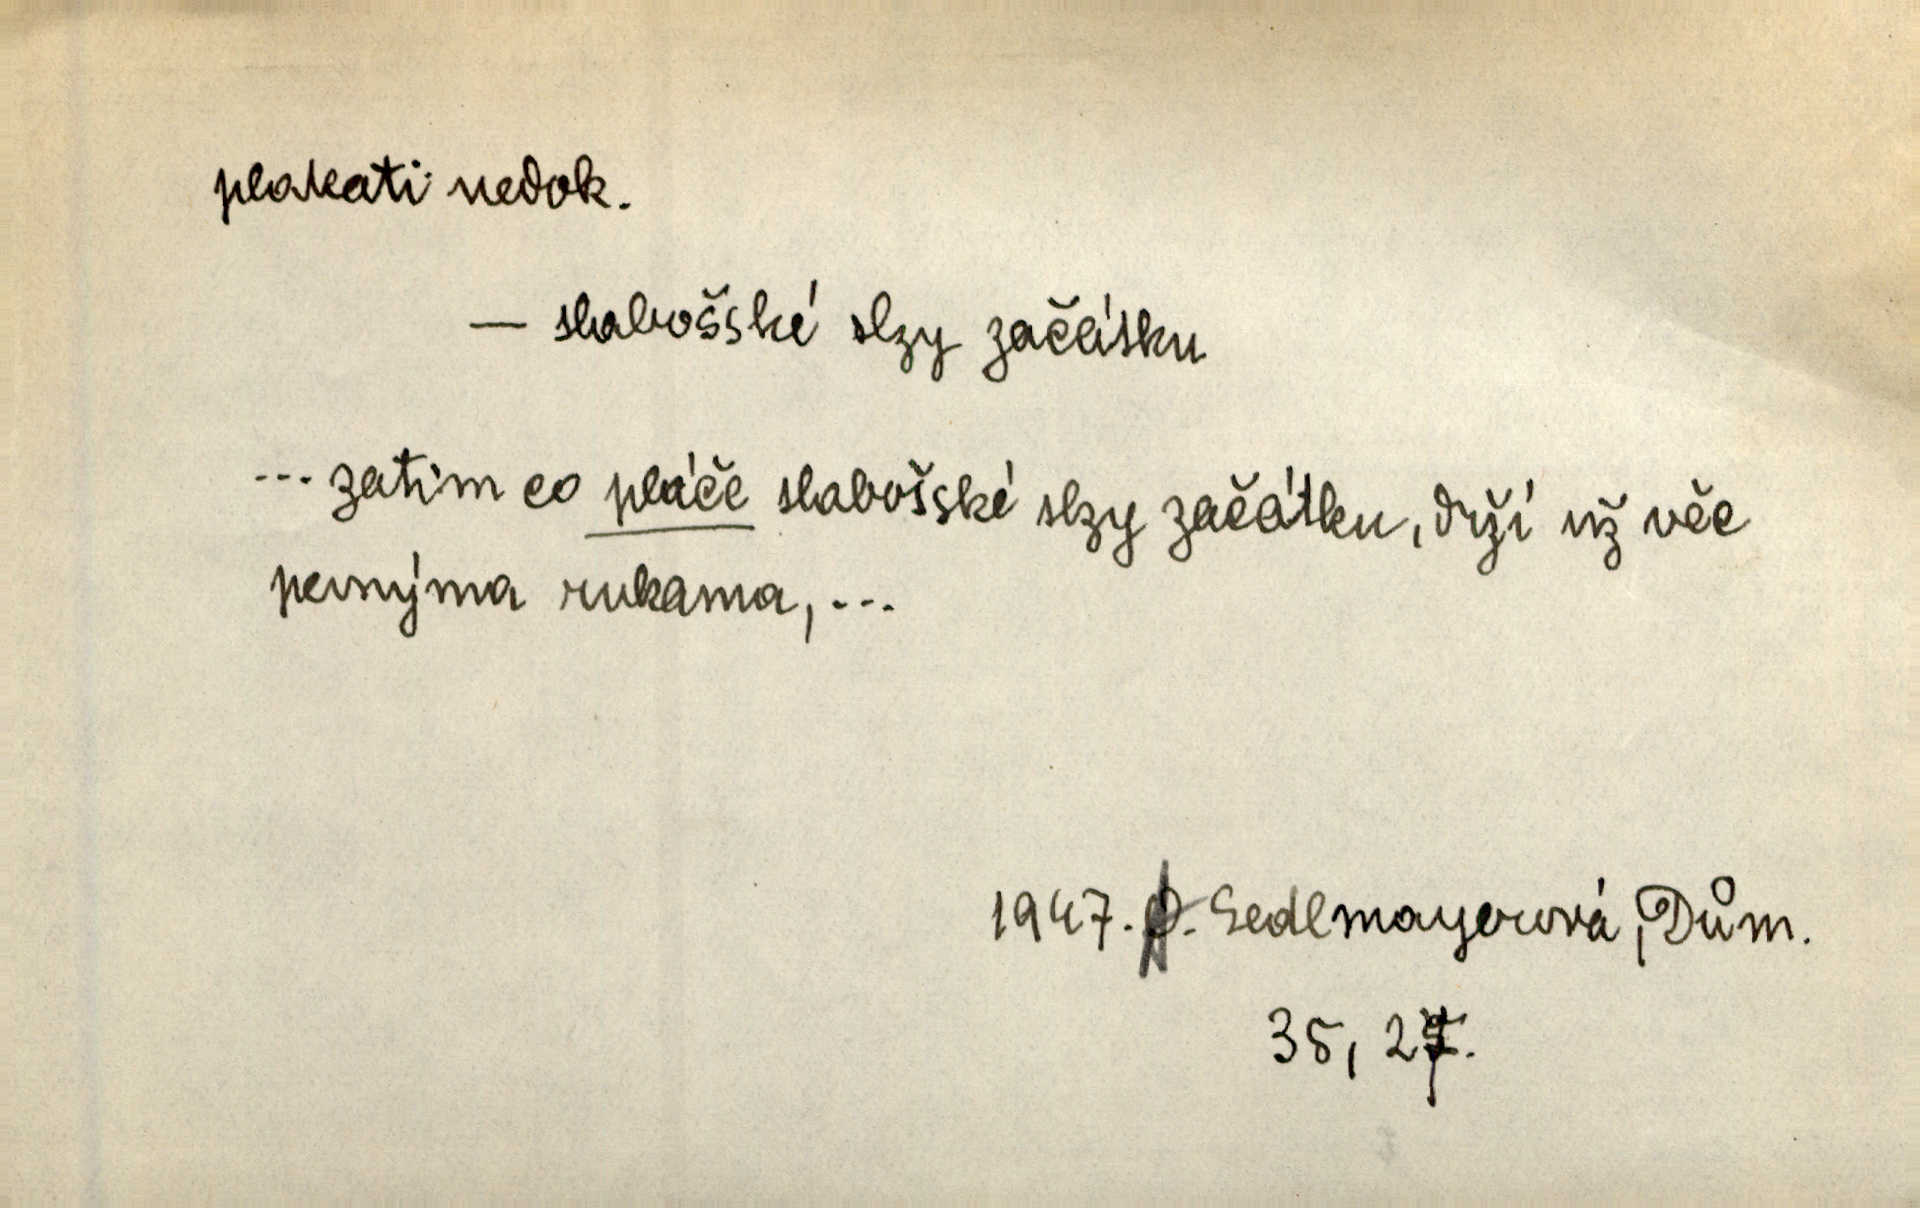 plakati nedok.
— slabošské slzy začátku
... zatím co pláče slabošské slzy začátku, drží už věc
pevnýma rukama, ...
1947. Sedlmayerová, Dům.
35, 27.